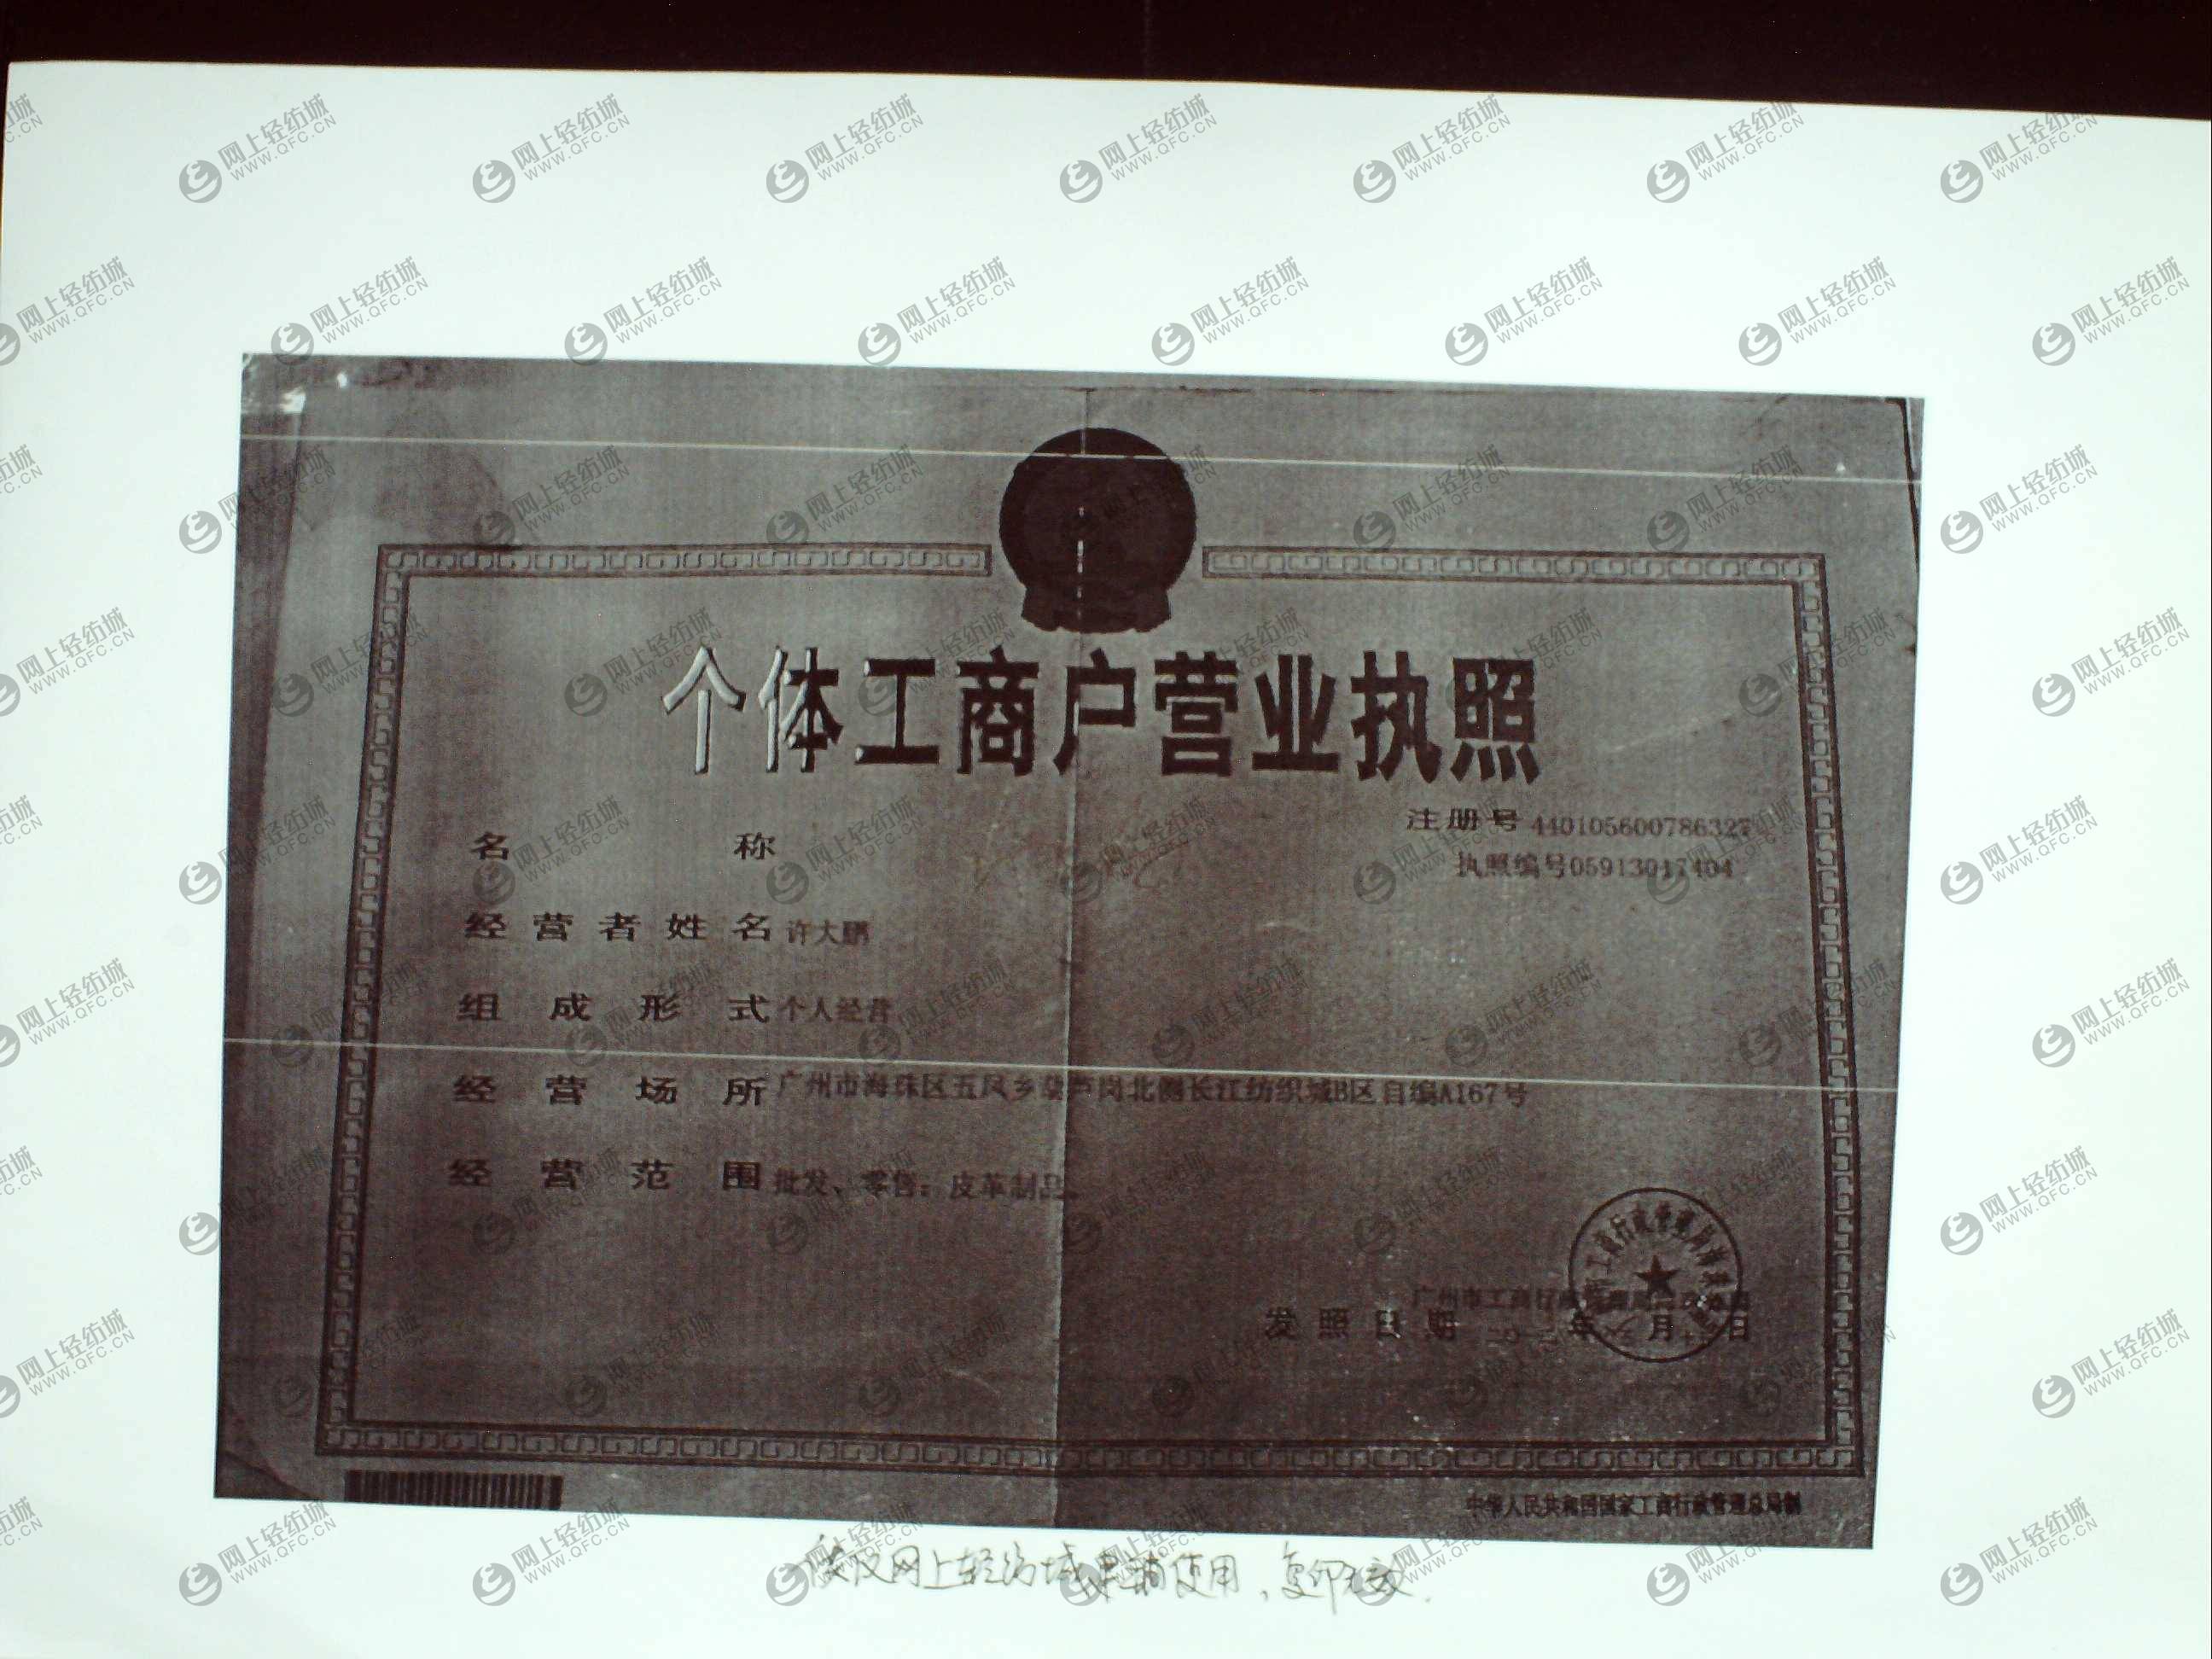 个体工商户营业执照
注册号 440105600786327
执照编号05913017404
名称
经营者姓名 许大鹏
组成形式 个人经营
经营场所 广州市海珠区五凤乡葫芦岗北侧长江纺织城B区自编A167号
经营范围 批发、零售：皮革制品。
广州市工商行政
发照日期 年 月 日
中华人民共和国国家工商行政管理总局制
仅网上轻纺城 使用，复印无效.
网上轻纺城
WWW.QFC.CN